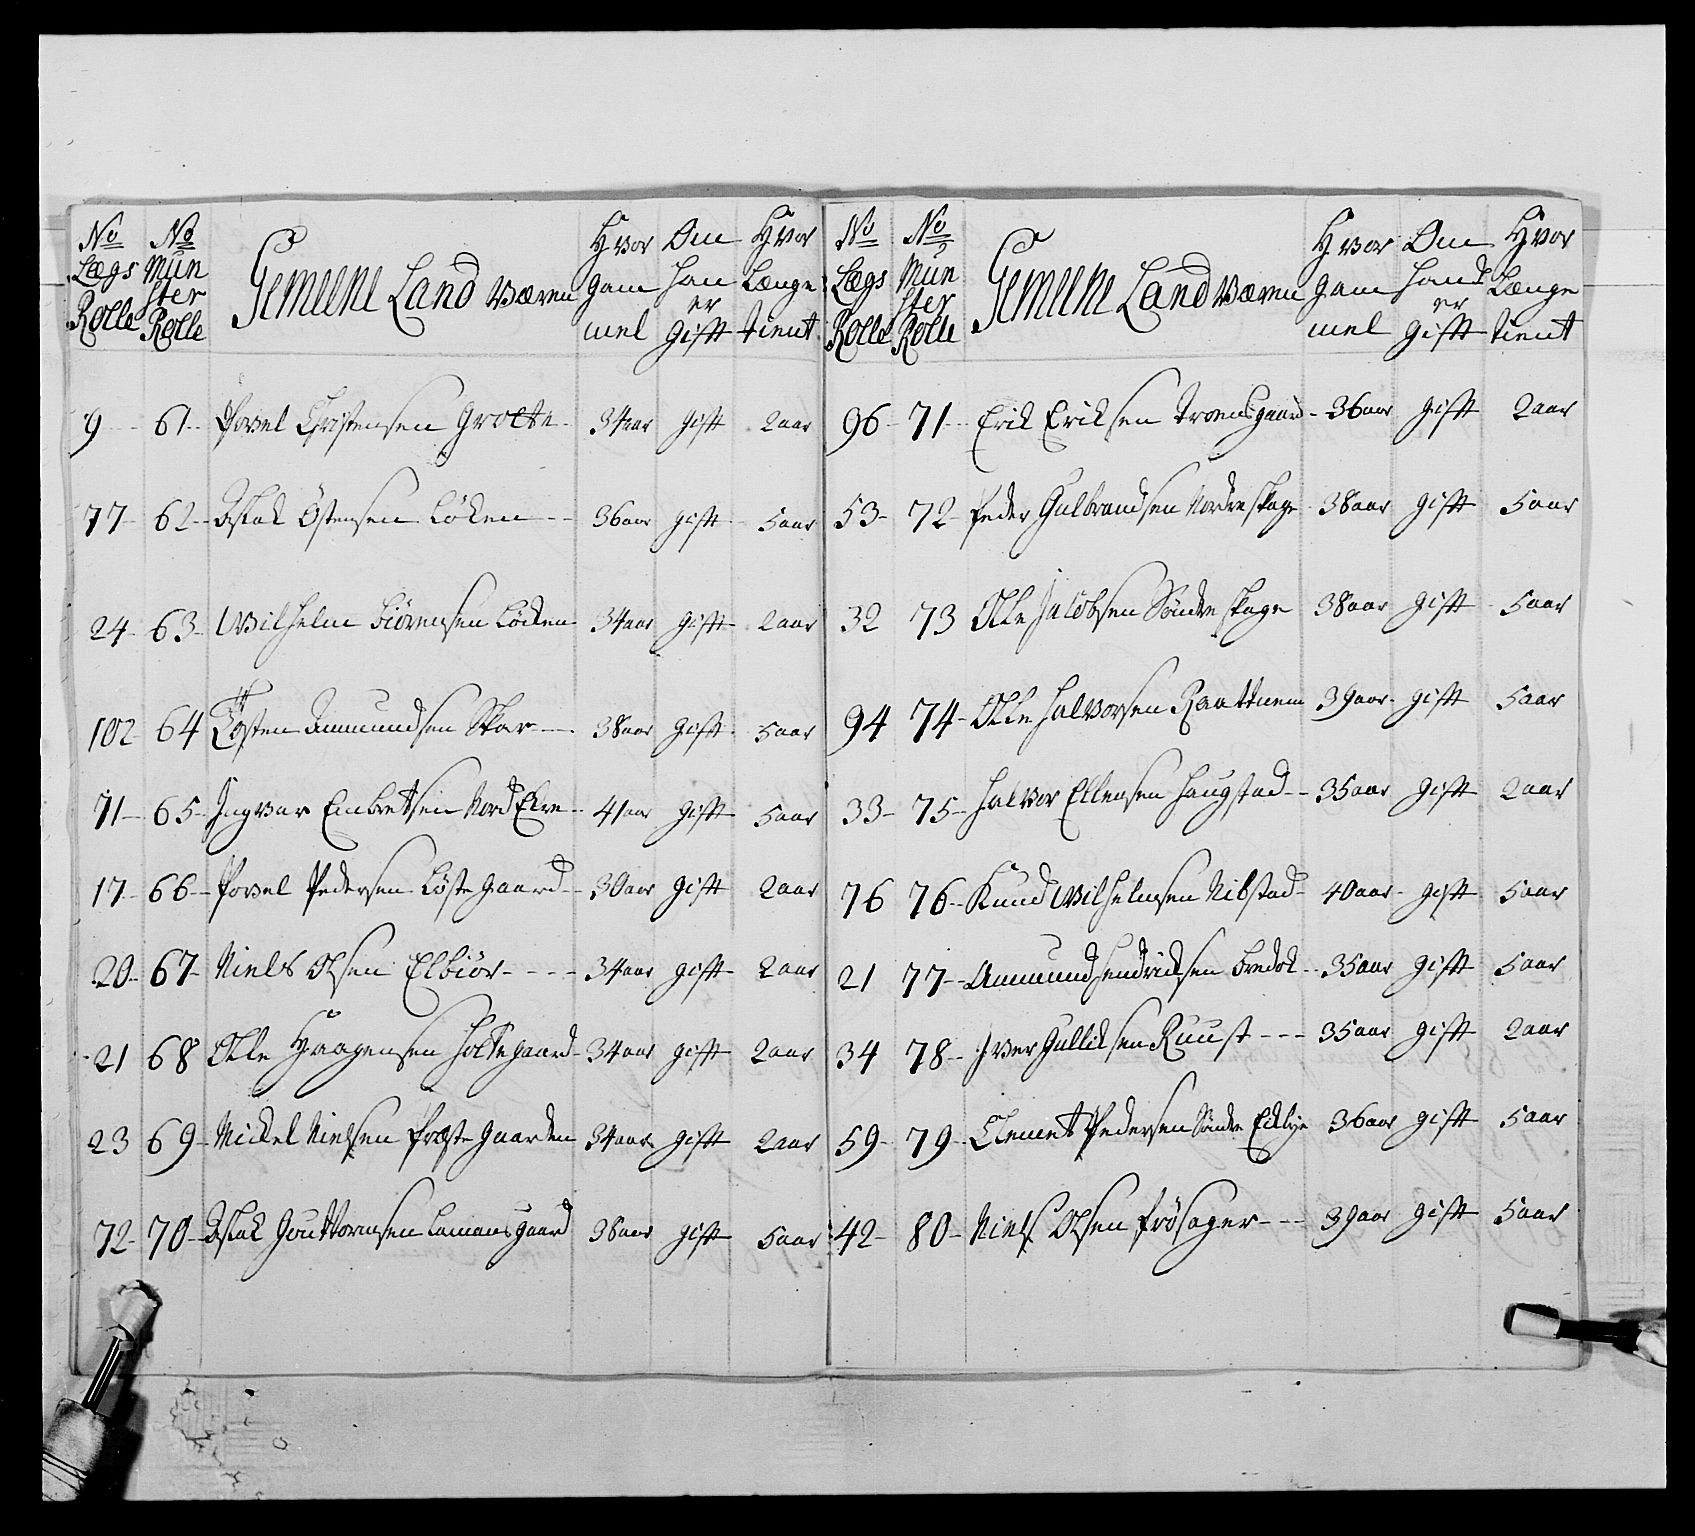 No Lægs Rolle | No Mun ster Rolle | Gemeene Land Værn | Hvor gam mel | Om han er Gift | Hvor Længe tient
9 - 61 - Povel Christensen Groette - 34 aar gift 2 aar
77 - 62 - Aslak Östensen Löken - - 36 aar gift 5 aar
24 - 63 - Wilhelm Biörensen Löcken 34 aar gift 2 aar
102 64 Tösten Ammundsen Skar - 38 aar gift 5 aar
71 - 65 - Ingvar Embretsen Nord Elve - 41 aar gift 5 aar
17 - 66 - Povel Pedersen Löste gaard - 30 aar gift 2 aar
20 - 67 - Niels Olsen Elbiör - - - - 34 aar gift 2 aar
21 68 Olle Haagensen Holte gaard - 34 aar gift 2 aar
23 69 - Mickel Nielsen Præste Gaarden 34 aar gift 2 aar
72 - 70 - Aslak Gouttormsen Lamans gaard 38 aar gift 5 aar
No Lægs Rolle | No Mun ster Rolle | Gemeene Land Værn | Hvor gam mel | Om hand er Gift | Hvor Længe tient
96 - 71 - Erick Ericksen Troensgaard - 36 aar gift 2 aar
53 - 72 - Peder Gulbrandsen Nordre Skage - 38 aar gift 5 aar
32 73 Olle Jacobsen Söndre Skage 38 aar gift 5 aar
94 74 - Olle Halvorsen Raattnem 39 aar - gift 5 aar
33 - 75 - Halvor Ellensen Haugstad - - 35 aar gift 2 aar
76 76 - Knud Wilhelmsen Nibstad - 40 aar - gift 5 aar
21 77 - Ammund Hendricksen - 35 aar gift 5 aar
34 78 - Iver Gullicksen Ruust - - - 35 aar gift 2 aar
59 - 79 - Clemet Pedersen Söndre 36 aar gift 5 aar
42 - 80 - Niels Olsen Frösager - - - 39 aar gift 5 aar